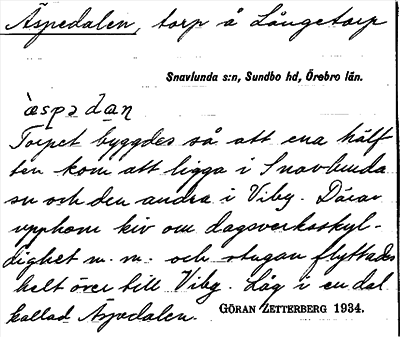 Äspedalen, torp å Långetorp
Snavlunda s:n, Sundbo hd, Örebro län.
`æspədaṇ
Torpet byggdes så att ena hälf
ten kom att ligga i Snavlunda
sn och den andra i Viby. Därav
upphom kiv om dagsverksskyl-
dighet m.m. och stugan flyttades
helt över till Viby. Låg i en dal
kallad Äspedalen. GÖRAN ZETTERBERG 1934.